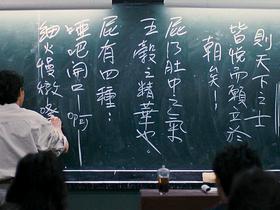 則天下之士
皆悅而願立於
朝矣！
屁乃肚中之氣
五穀之精華也
屁有四種：
啞吧開口－啊
細火慢燉